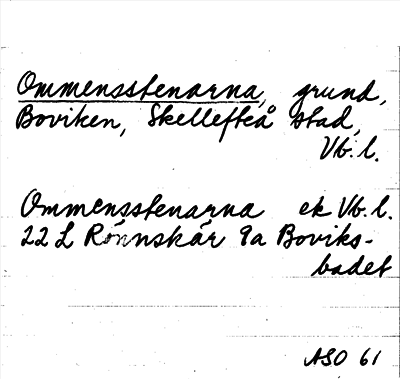 Ommensstenarna, grund,
Boviken, Skellefteå stad,
Vb. l.
Ommensstenarna ek Vb. l.
22 L Rönnskär 9a Boviks-
badet
ASO 61